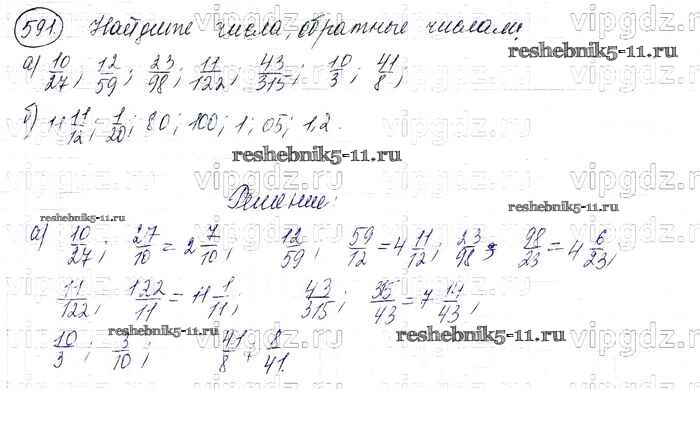 591. Найдите числа, обратные числам:
vipgdz.ru
reshebnik5-11.ru
а) 10/27; 12/59; 23/98; 11/122; 43/315; 10/3; 41/8;
б) 11 11/12; 1/20; 80; 100; 1; 05; 1,2.
reshebnik5-11.ru
Решение:
reshebnik5-11.ru
reshebnik5-11.ru
а) 10/27; 27/10 = 2 7/10; 12/59; 59/12 = 4 11/12; 23/98; 98/23 = 4 6/23,
11/122; 122/11 = 11 1/11; 43/315; 315/43 = 7 14/43;
reshebnik5-11.ru
reshebnik5-11.ru
10/3; 3/10; 41/8; 8/41.